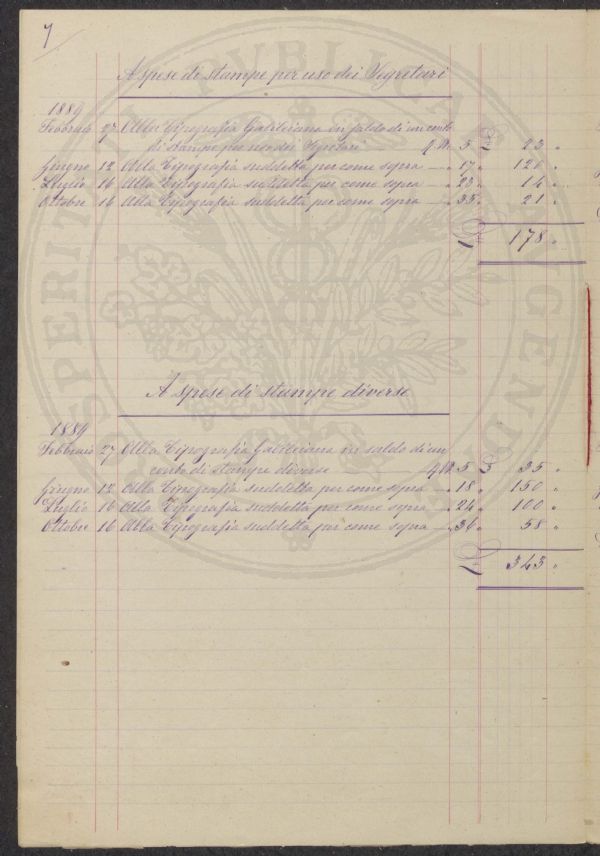 7
A spese di stampe per uso dei Segretari
1889
Febbraio 27 Alla Tipografia Galileiana in saldo di un conto
di stampe per uso dei Segretari — 5 £ 23 "
Giugno 12 Alla Tipografia suddetta per come sopra — " 17 " 120 "
Luglio 16 Alla Tipografia suddetta per come sopra — " 23 " 14 "
Ottobre 16 Alla Tipografia suddetta per come sopra — " 35 " 21 "
£ 178 "
A spese di stampe diverse
1889
Febbraio 27 Alla Tipografia Galileiana in saldo di un
conto di stampe diverse — 5 £ 35 "
Giugno 12 Alla Tipografia suddetta per come sopra — " 18 " 150 "
Luglio 16 Alla Tipografia suddetta per come sopra — " 24 " 100 "
Ottobre 16 Alla Tipografia suddetta per come sopra — " 36 " 58 "
£ 343 "
PVBLICAE